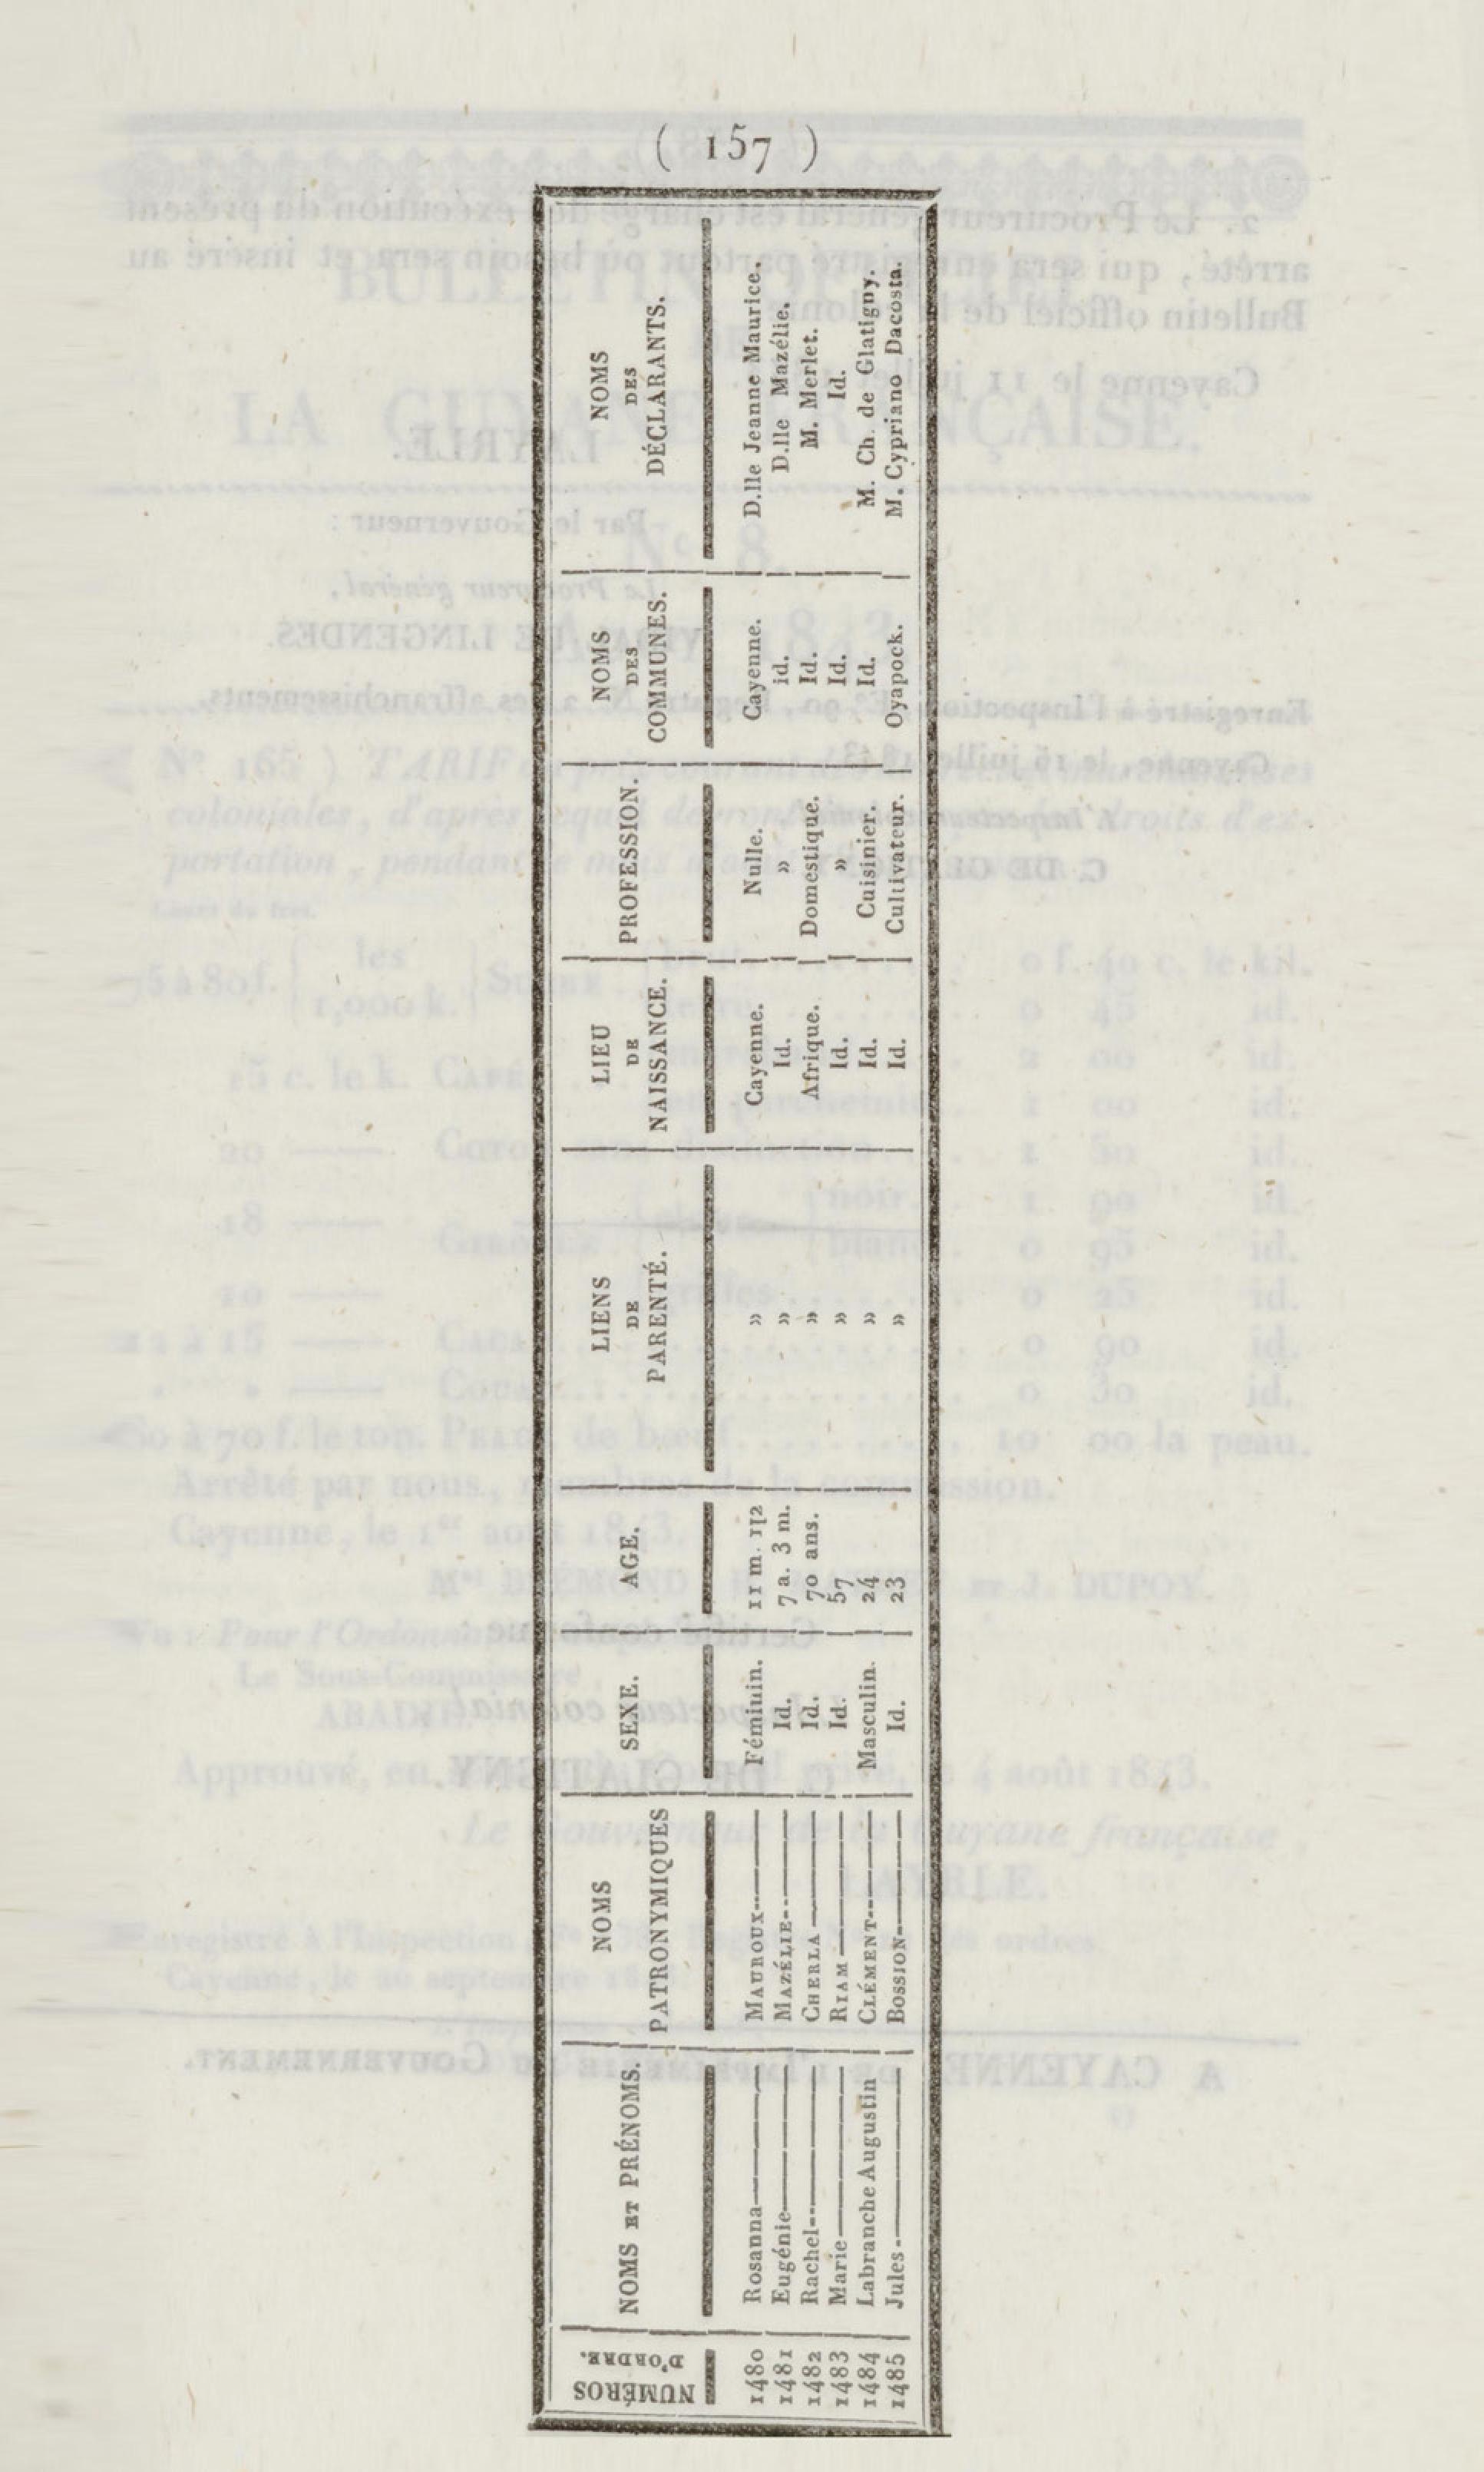 ( 157 )
NUMÉROS D'ORDRE. | NOMS ET PRÉNOMS. | NOMS PATRONYMIQUES | SEXE. | AGE. | LIENS DE PARENTÉ. | LIEU DE NAISSANCE. | PROFESSION. | NOMS DES COMMUNES. | NOMS DES DÉCLARANTS.
1480 | Rosanna | MAUROUX | Féminin. | 11 m. 1[2 | » | Cayenne. | Nulle. | Cayenne. | D.lle Jeanne Maurice.
1481 | Eugénie | MAZÉLIE | Id. | 7 a. 3 m. | » | Id. | » | id. | D.lle Mazélie.
1482 | Rachel | CHERLA | Id. | 70 ans. | » | Afrique. | Domestique. | Id. | M. Merlet.
1483 | Marie | RIAM | Id. | 57 | » | Id. | » | Id. | Id.
1484 | Labranche Augustin | CLÉMENT | Masculin. | 24 | » | Id. | Cuisinier. | Id. | M. Ch. de Glatigny.
1485 | Jules | BOSSION | Id. | 23 | » | Id. | Cultivateur. | Oyapock. | M. Cypriano Dacosta.